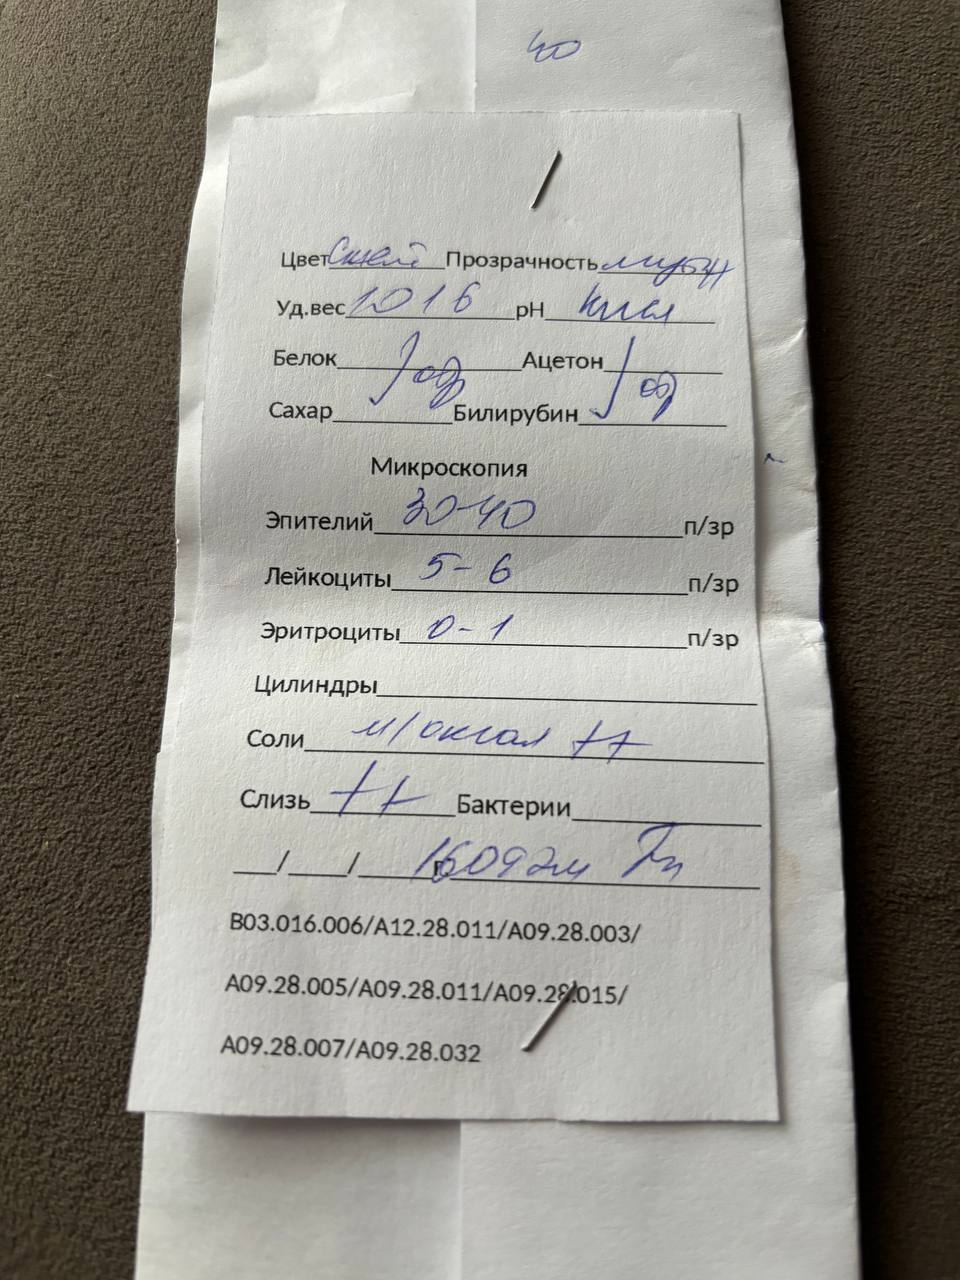 40
Цвет Прозрачность
Уд.вес 1016 рН кисл
Белок Ацетон
Сахар Билирубин
Микроскопия
Эпителий 30-40 п/зр
Лейкоциты 5-6 п/зр
Эритроциты 0-1 п/зр
Цилиндры
Соли оксал ++
Слизь ++ Бактерии
__/__/__г. 1609
B03.016.006/A12.28.011/A09.28.003/
A09.28.005/A09.28.011/A09.28.015/
A09.28.007/A09.28.032